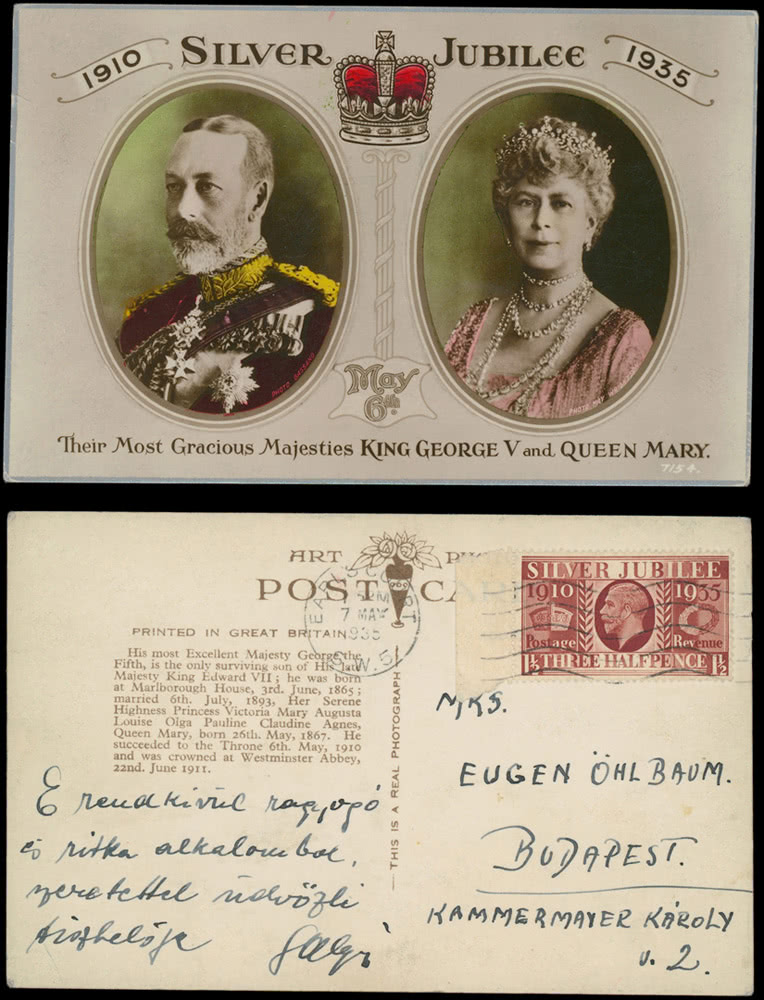 1910 SILVER JUBILEE 1935
May
6th.
Their Most Gracious Majesties KING GEORGE V and QUEEN MARY.
7154.
ART
POST CA
PRINTED IN GREAT BRITAIN
His most Excellent Majesty George the
Fifth, is the only surviving son of His late
Majesty King Edward VII; he was born
at Marlborough House, 3rd. June, 1865;
married 6th. July, 1893, Her Serene
Highness Princess Victoria Mary Augusta
Louise Olga Pauline Claudine Agnes,
Queen Mary, born 26th. May, 1867. He
succeeded to the Throne 6th. May, 1910
and was crowned at Westminster Abbey,
22nd. June 1911.
THIS IS A REAL PHOTOGRAPH
7 MAY
1935
S.W.5
SILVER JUBILEE
1910 1935
Postage Revenue
1½ THREE HALFPENCE 1½
E rendkivül ragyogó
és ritka alkalomból,
szeretettel üdvözli
tisztelője
MRS.
EUGEN ÖHLBAUM.
BUDAPEST.
KAMMERMAYER KÁROLY
U. 2.